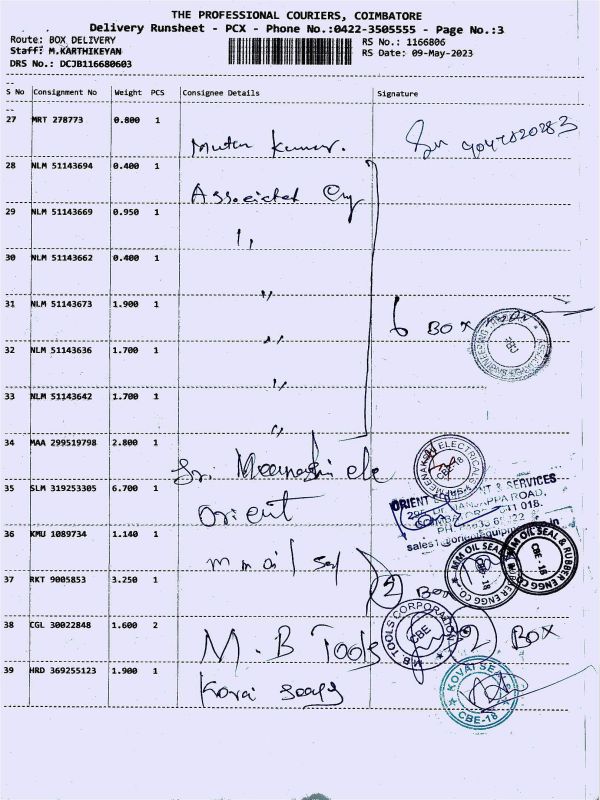 THE PROFESSIONAL COURIERS, COIMBATORE
Delivery Runsheet - PCX - Phone No.:0422-3505555 - Page No.:3
Route: BOX DELIVERY
RS No.: 1166806
Staff: M.KARTHIKEYAN
RS Date: 09-May-2023
DRS No.: DCJB116680603
S No Consignment No Weight PCS Consignee Details Signature
27 MRT 278773 0.800 1
Kumar.
28 NLM 51143694 0.400 1
29 NLM 51143669 0.950 1
30 NLM 51143662 0.400 1
31 NLM 51143673 1.900 1
6 BOX
32 NLM 51143636 1.700 1
33 NLM 51143642 1.700 1
34 MAA 299519798 2.800 1
Sri Meenakshi ele
35 SLM 319253305 6.700 1
Orient
36 KMU 1089734 1.140 1
m m oil seal
MM OIL SEAL & RUBBER ENGG CO
CBE - 18
37 RKT 9005853 3.250 1
2 Box
38 CGL 30022848 1.600 2
M.B Tools
M B TOOLS CORPORATION
CBE
2 Box
39 HRD 369255123 1.900 1
Kovai seals
KOVAI SEALS
CBE-18